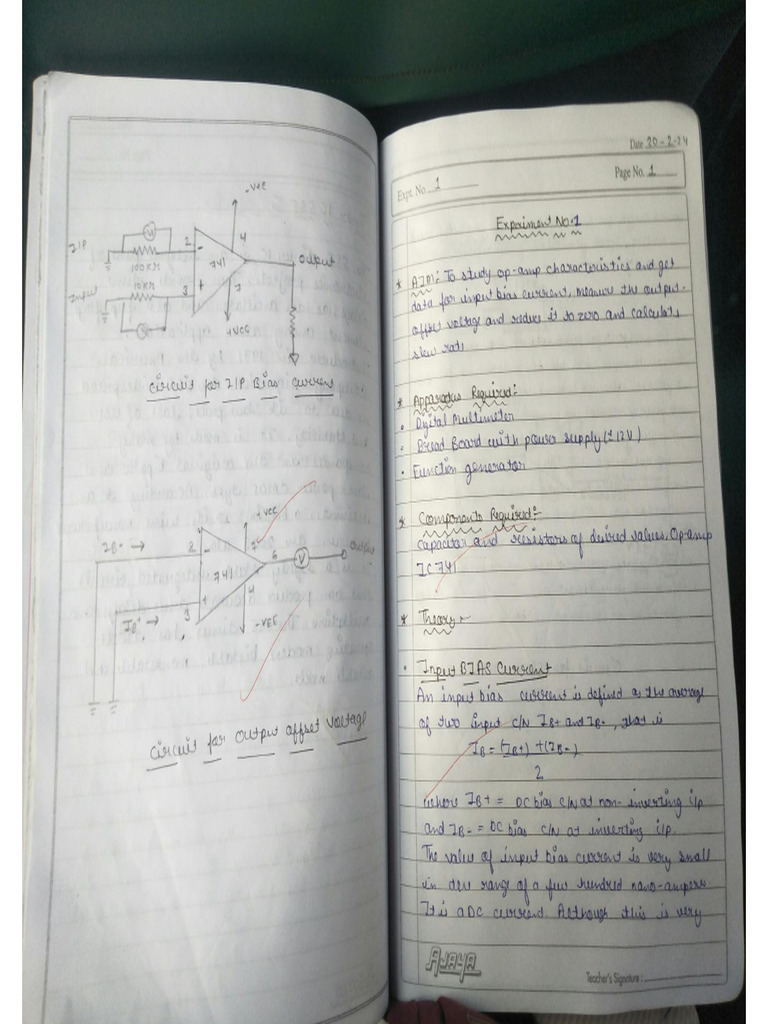 -VCC
I/P
V
2
-
4
741
Output
100KΩ
10KΩ
Input
3
+
7
+VCC
Circuit for I/P Bias Current
+VCC
IB- →
2
-
7
6
V
Output
741
+
4
IB+ →
3
-VEE
Circuit for Output offset Voltage
Date 20-2-24
Expt. No. 1
Page No. 1
Expriment No.1
* AIM: To study op-amp characteristics and get
data for input bias current, measure the output-
offset voltage and reduce it to zero and calculate
slew rate
* Apparatus Required:
• Digital Multimeter
• Bread Board with power supply (±12V)
• Function generator
* Components Required:-
Capacitor and resistors of desired values. Op-amp
IC 741
* Theory:-
• Input BIAS Current
An input bias current is defined as the average
of two input c/n IB+ and IB-, that is
IB = (IB+) + (IB-)
2
where IB+ = DC bias c/n at non-inverting i/p
and IB- = DC bias c/n at inverting i/p.
The value of input bias current is very small
in the range of a few hundred nano-ampers
It is a DC current. Although this is very
AJAYA
Teacher's Signature :